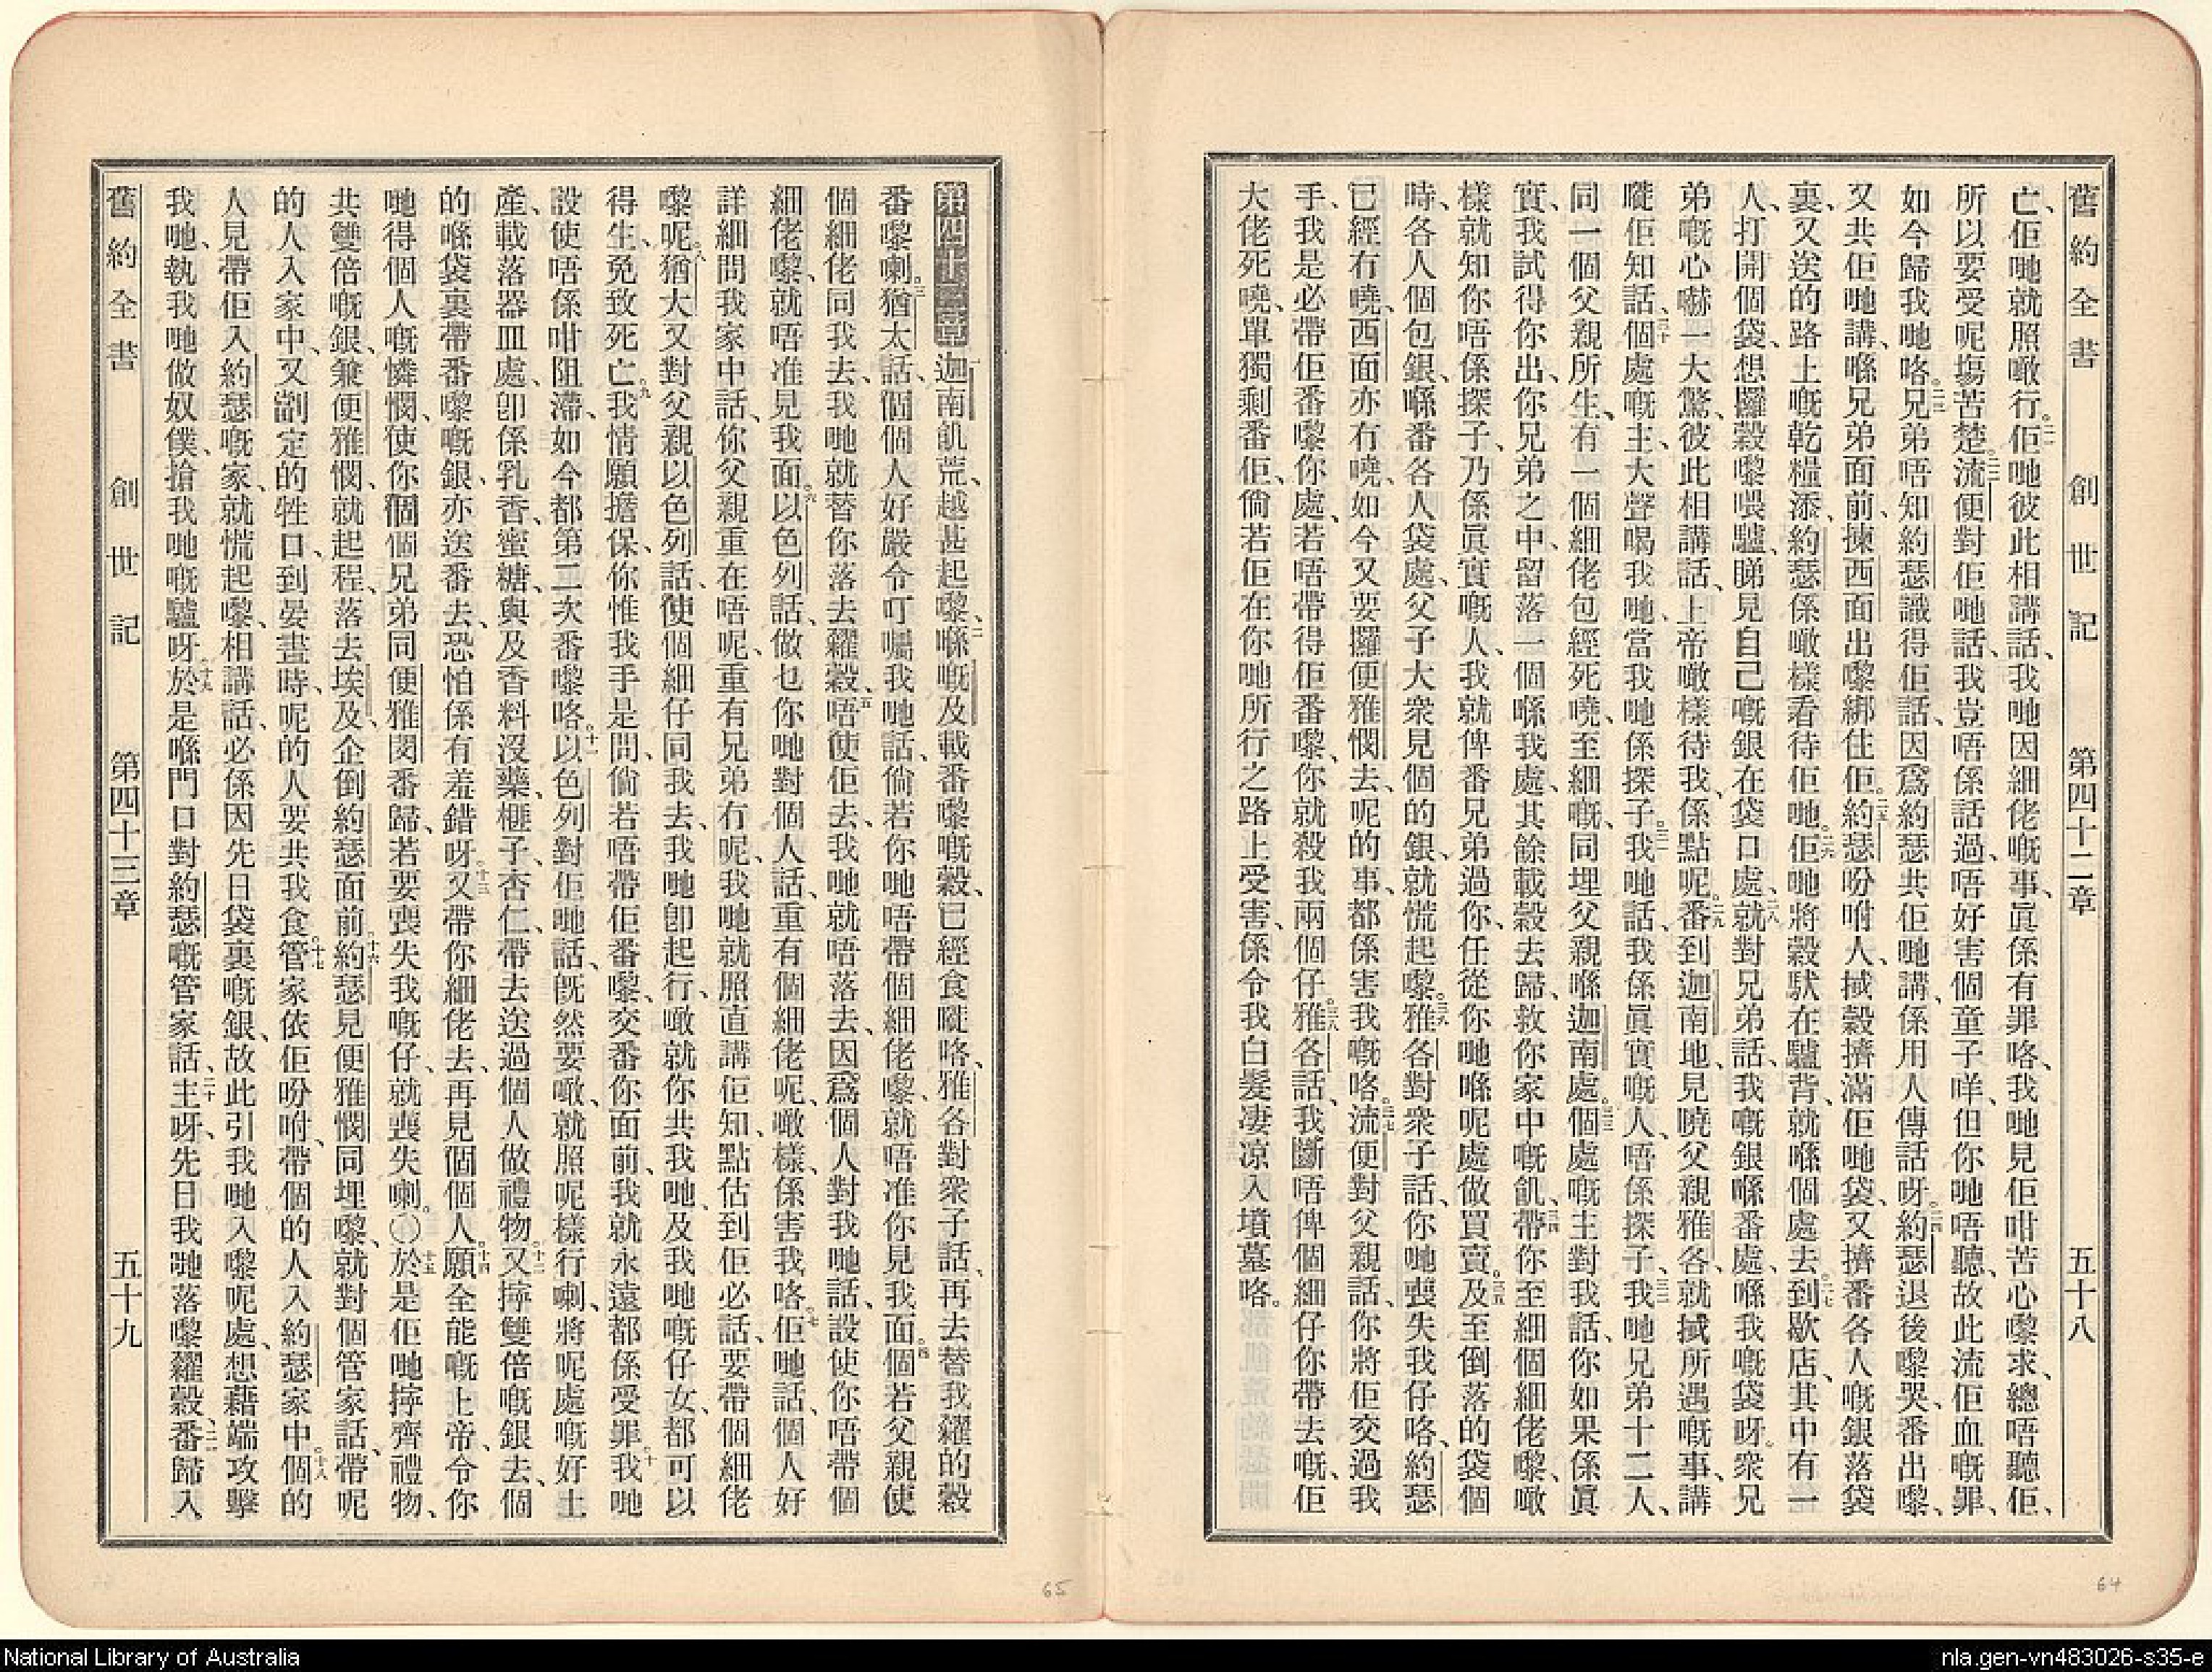 舊約全書 創世記 第四十二章 五十八
亡、佢哋就照噉行。二一佢哋彼此相講話、我哋因細佬嘅事、眞係有罪咯、我哋見佢咁苦心嚟求、總唔聽佢、
所以要受呢塲苦楚。二二流便對佢哋話、我豈唔係話過、唔好害個童子咩、但你哋唔聽、故此流佢血嘅罪、
如今歸我哋咯。二三兄弟唔知約瑟識得佢話、因爲約瑟共佢哋講、係用人傳話呀。二四約瑟退後嚟哭、番出嚟、
又共佢哋講、喺兄弟面前、揀西面出嚟綁住佢。二五約瑟吩咐人、搣穀擠滿佢哋袋、又擠番各人嘅銀落袋
裏、又送的路上嘅乾糧添、約瑟係噉樣看待佢哋。二六佢哋將穀馱在驢背、就喺個處去。二七到歇店、其中有一
人、打開個袋、想攞穀嚟喂驢、睇見自己嘅銀在袋口處、二八就對兄弟話、我嘅銀喺番處、喺我嘅袋呀。衆兄
弟嘅心嚇一大驚、彼此相講話、上帝噉樣待我、係點呢。二九番到迦南地、見曉父親雅各、就搣所遇嘅事、講
嚨佢知話、三十個處嘅主、大聲喝我哋、當我哋係探子。三一我哋話、我係眞實嘅人、唔係探子、三二我哋兄弟十二人、
同一個父親所生、有一個細佬包經死曉、至細嘅、同埋父親喺迦南處。三三個處嘅主對我話、你如果係眞
實、我試得你出、你兄弟之中、留落一個喺我處、其餘載穀去歸、救你家中嘅飢、三四帶你至細個細佬嚟、噉
樣就知你唔係探子、乃係眞實嘅人、我就俾番兄弟過你、任從你哋喺呢處做買賣。三五及至倒落的袋個
時、各人個包銀、喺番各人袋處、父子大衆見個的銀、就慌起嚟。三六雅各對衆子話、你哋喪失我仔咯、約瑟
已經冇曉、西面亦冇曉、如今又要攞便雅憫去、呢的事、都係害我嘅咯。三七流便對父親話、你將佢交過我
手、我是必帶佢番嚟你處、若唔帶得佢番嚟、你就殺我兩個仔。三八雅各話、我斷唔俾個細仔你帶去嘅、佢
大佬死曉、單獨剩番佢、倘若佢在你哋所行之路上受害、係令我白髮凄凉入墳墓咯。
第四十三章 一迦南飢荒、越甚起嚟、二喺嘅及載番嚟嘅穀、已經食嚨咯、雅各對衆子話、再去替我糴的穀
番嚟喇。三猶大話、個個人好嚴令叮囑我哋話、倘若你哋唔帶個細佬嚟、就唔准你見我面。四個若父親使
個細佬同我去、我哋就替你落去糴穀、五唔使佢去、我哋就唔落去、因爲個人對我哋話、設使你唔帶個
細佬嚟、就唔准見我面。六以色列話、做乜你哋對個人話、重有個細佬呢、噉樣、係害我咯。七佢哋話、個人好
詳細問我家中話、你父親重在唔呢、重有兄弟冇呢、我哋就照直講佢知、點估到佢必話、要帶個細佬
嚟呢。八猶大又對父親以色列話、使個細仔同我去、我哋卽起行、噉就你共我哋、及我哋嘅仔女、都可以
得生、免致死亡。九我情願擔保、你惟我手是問、倘若唔帶佢番嚟、交番你面前、我就永遠都係受罪。十我哋
設使唔係咁阻滯、如今都第二次番嚟咯。十一以色列對佢哋話、旣然要噉、就照呢樣行喇、將呢處嘅好土
產、載落器皿處、卽係乳香、蜜糖、與及香料沒藥、榧子、杏仁、帶去送過個人做禮物。十二又擰雙倍嘅銀去、個
的喺袋裏帶番嚟嘅銀、亦送番去、恐怕係有羞錯呀。十三又帶你細佬去、再見個個人。十四願全能嘅上帝、令你
哋得個人嘅憐憫、使你個個兄弟同便雅閔番歸、若要喪失我嘅仔、就喪失喇。〇十五於是佢哋擰齊禮物、
共雙倍嘅銀、兼便雅憫、就起程、落去埃及、企倒約瑟面前。十六約瑟見便雅憫同埋嚟、就對個管家話、帶呢
的人入家中、又劏定的牲口、到晏晝時、呢的人要共我食。十七管家依佢吩咐、帶個的人入約瑟家中。十八個的
人見帶佢入約瑟嘅家、就慌起嚟、相講話、必係因先日袋裏嘅銀、故此引我哋入嚟呢處、想藉端攻擊
我哋、執我哋做奴僕、搶我哋嘅驢呀。十九於是喺門口對約瑟嘅管家話、二十主呀、先日我哋落嚟糴穀、二一番歸入
舊約全書 創世記 第四十三章 五十九
65
64
National Library of Australia
nla.gen-vn483026-s35-e